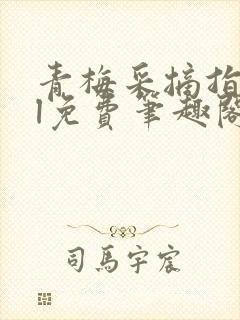 青梅采摘指
l免费筆趣阁
司馬宇宸